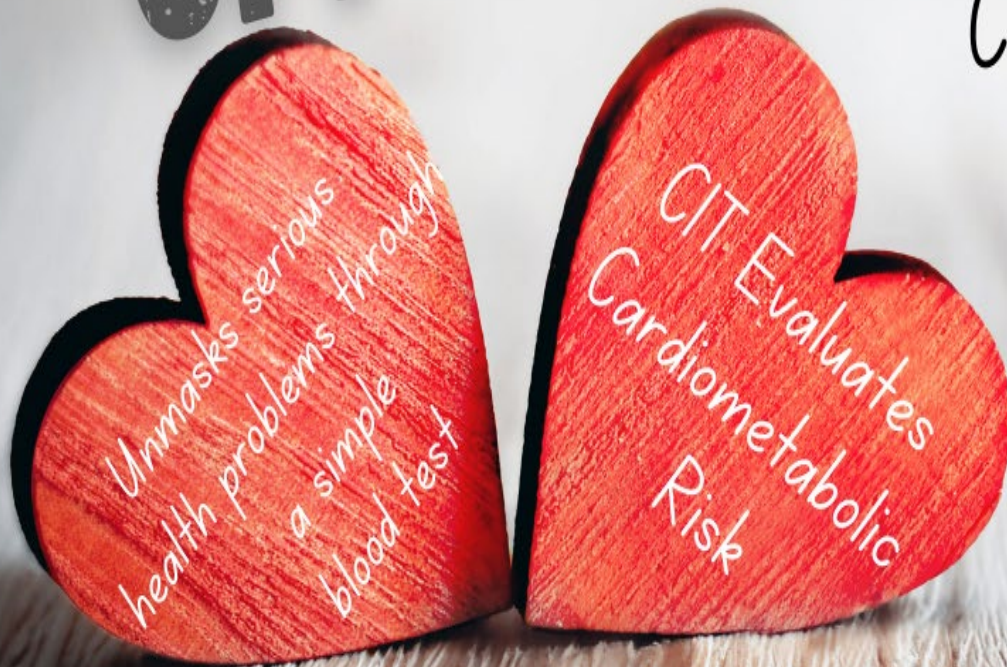 Unmasks serious
health problems through
a simple
blood test
CIT Evaluates
Cardiometabolic
Risk